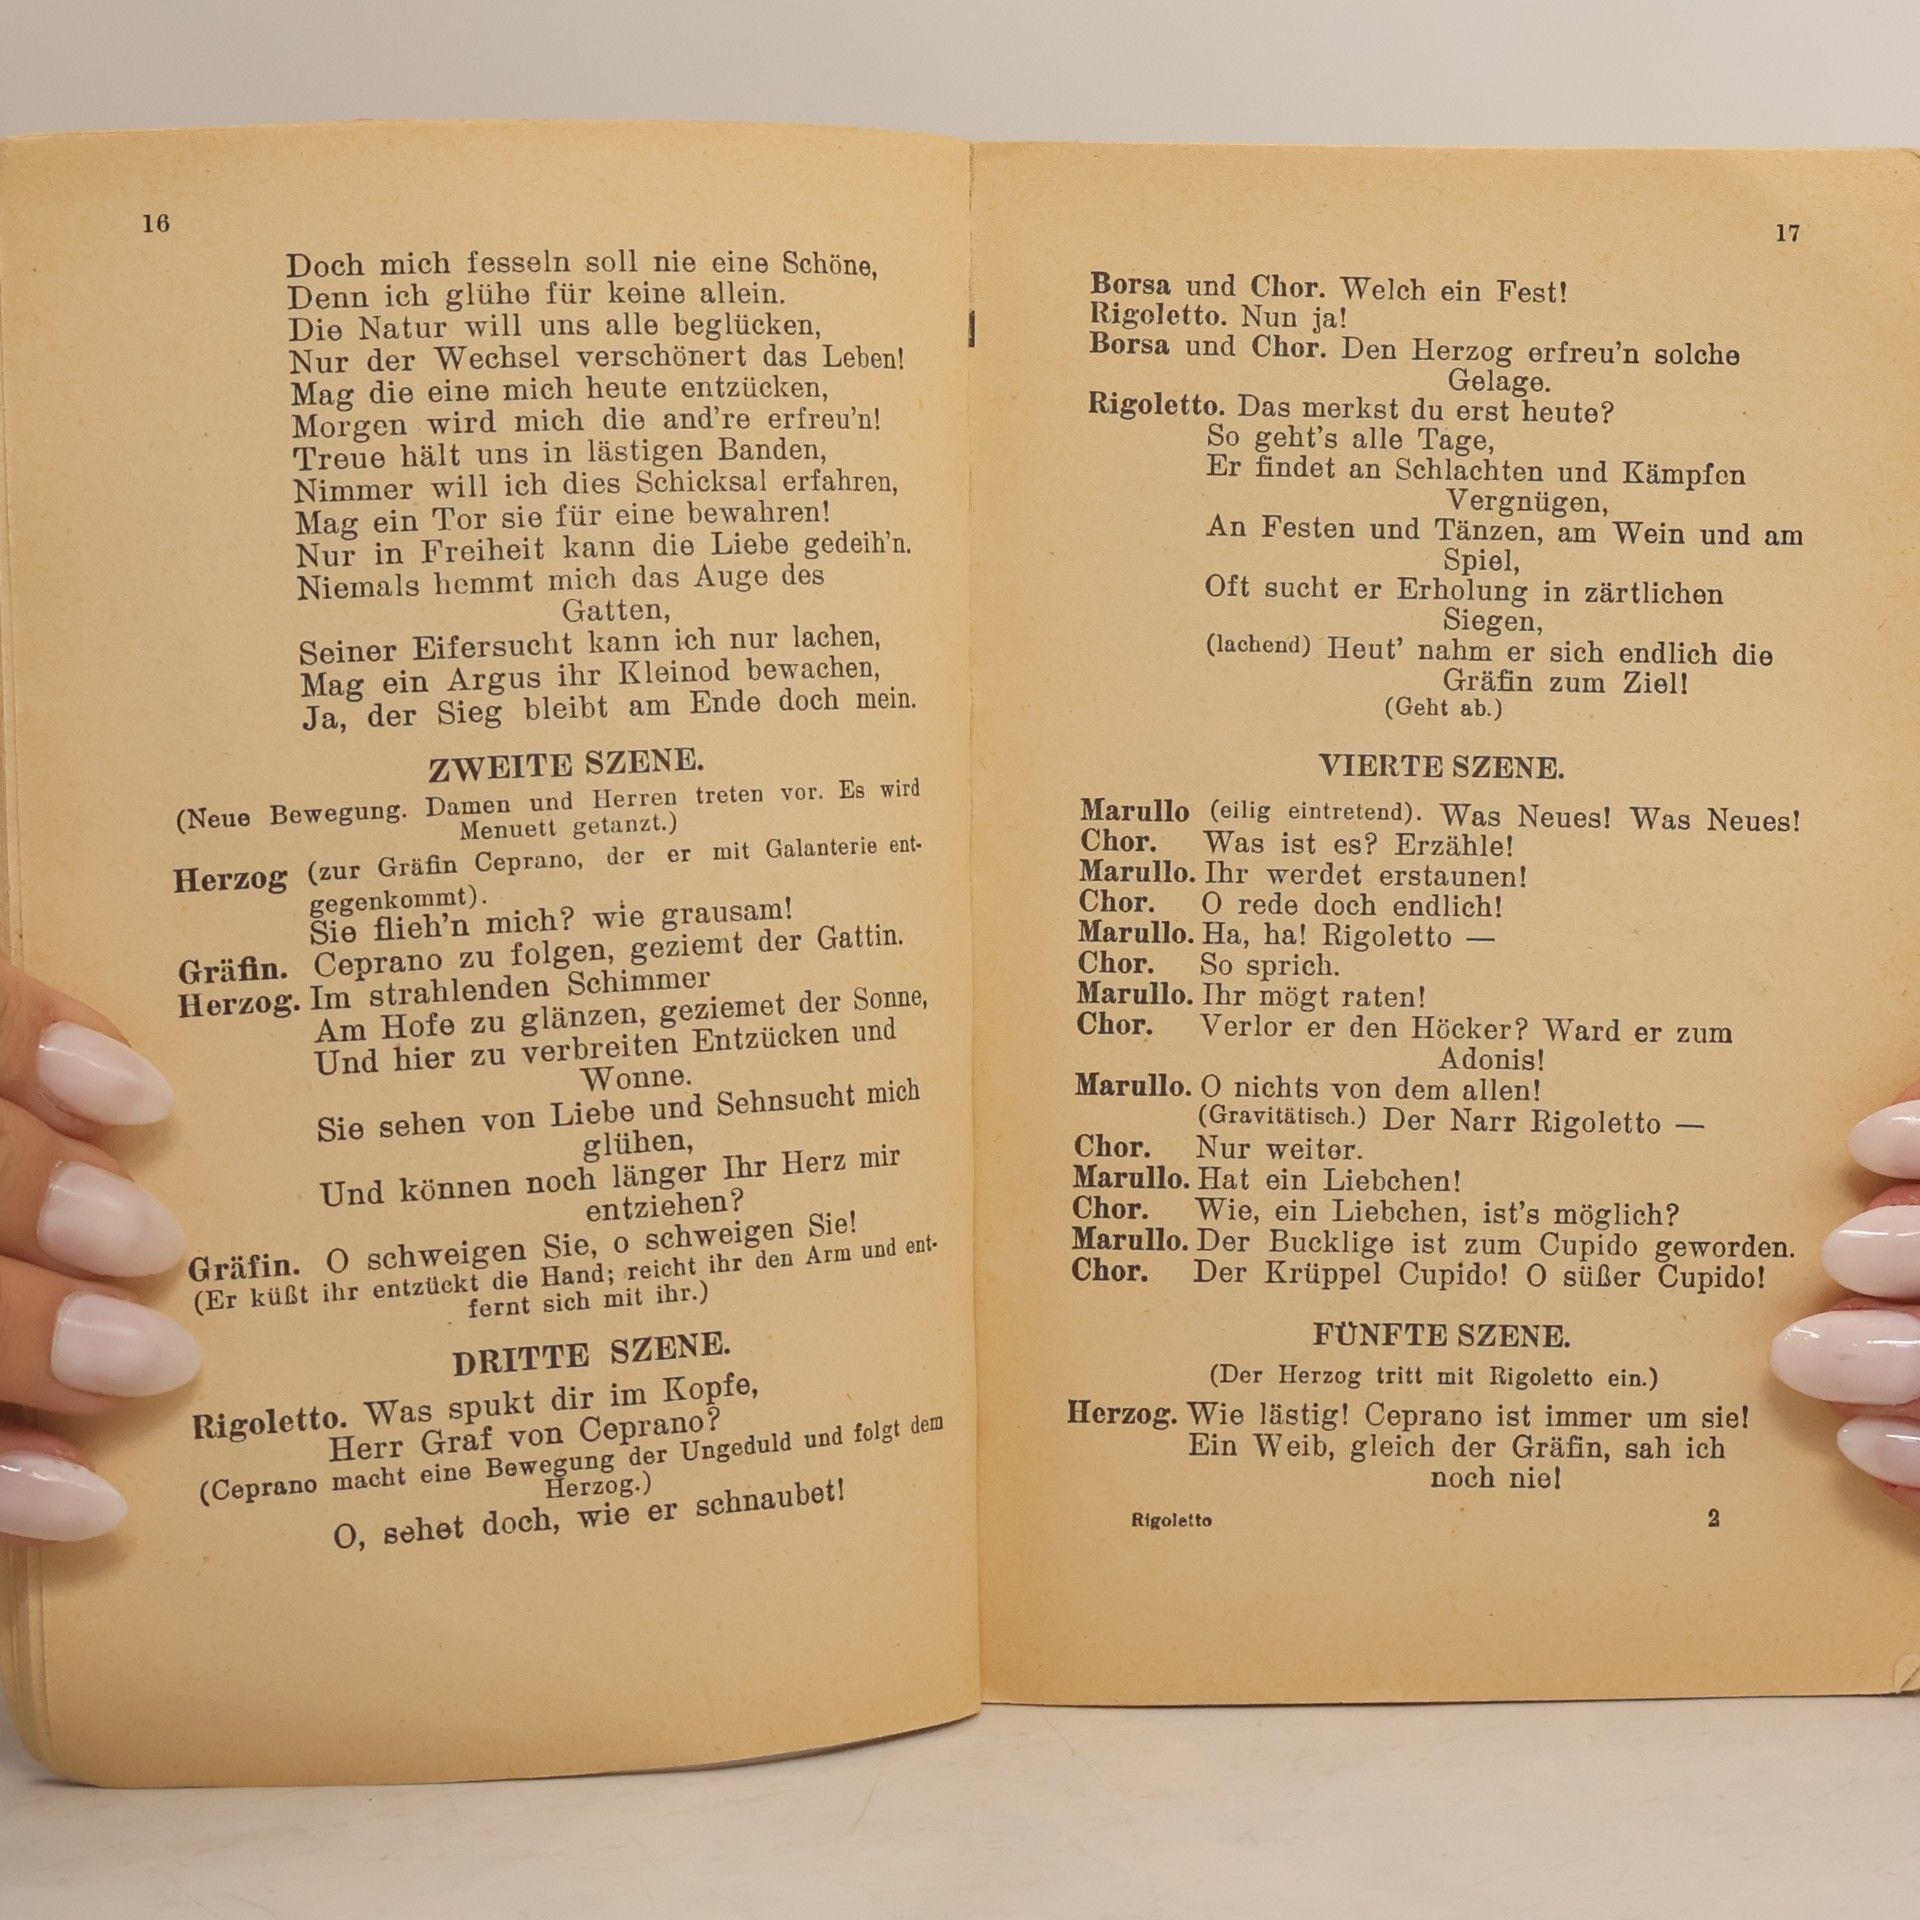 16
Doch mich fesseln soll nie eine Schöne,
Denn ich glühe für keine allein.
Die Natur will uns alle beglücken,
Nur der Wechsel verschönert das Leben!
Mag die eine mich heute entzücken,
Morgen wird mich die and're erfreu'n!
Treue hält uns in lästigen Banden,
Nimmer will ich dies Schicksal erfahren,
Mag ein Tor sie für eine bewahren!
Nur in Freiheit kann die Liebe gedeih'n.
Niemals hemmt mich das Auge des
Gatten,
Seiner Eifersucht kann ich nur lachen,
Mag ein Argus ihr Kleinod bewachen,
Ja, der Sieg bleibt am Ende doch mein.
ZWEITE SZENE.
(Neue Bewegung. Damen und Herren treten vor. Es wird
Menuett getanzt.)
Herzog (zur Gräfin Ceprano, der er mit Galanterie ent-
gegenkommt).
Sie flieh'n mich? wie grausam!
Gräfin. Ceprano zu folgen, geziemt der Gattin.
Herzog. Im strahlenden Schimmer
Am Hofe zu glänzen, geziemet der Sonne,
Und hier zu verbreiten Entzücken und
Wonne.
Sie sehen von Liebe und Sehnsucht mich
glühen,
Und können noch länger Ihr Herz mir
entziehen?
Gräfin. O schweigen Sie, o schweigen Sie!
(Er küßt ihr entzückt die Hand; reicht ihr den Arm und ent-
fernt sich mit ihr.)
DRITTE SZENE.
Rigoletto. Was spukt dir im Kopfe,
Herr Graf von Ceprano?
(Ceprano macht eine Bewegung der Ungeduld und folgt dem
Herzog.)
O, sehet doch, wie er schnaubet!
17
Borsa und Chor. Welch ein Fest!
Rigoletto. Nun ja!
Borsa und Chor. Den Herzog erfreu'n solche
Gelage.
Rigoletto. Das merkst du erst heute?
So geht's alle Tage,
Er findet an Schlachten und Kämpfen
Vergnügen,
An Festen und Tänzen, am Wein und am
Spiel,
Oft sucht er Erholung in zärtlichen
Siegen,
(lachend) Heut' nahm er sich endlich die
Gräfin zum Ziel!
(Geht ab.)
VIERTE SZENE.
Marullo (eilig eintretend). Was Neues! Was Neues!
Chor. Was ist es? Erzähle!
Marullo. Ihr werdet erstaunen!
Chor. O rede doch endlich!
Marullo. Ha, ha! Rigoletto —
Chor. So sprich.
Marullo. Ihr mögt raten!
Chor. Verlor er den Höcker? Ward er zum
Adonis!
Marullo. O nichts von dem allen!
(Gravitätisch.) Der Narr Rigoletto —
Chor. Nur weiter.
Marullo. Hat ein Liebchen!
Chor. Wie, ein Liebchen, ist's möglich?
Marullo. Der Bucklige ist zum Cupido geworden.
Chor. Der Krüppel Cupido! O süßer Cupido!
FÜNFTE SZENE.
(Der Herzog tritt mit Rigoletto ein.)
Herzog. Wie lästig! Ceprano ist immer um sie!
Ein Weib, gleich der Gräfin, sah ich
noch nie!
Rigoletto 2